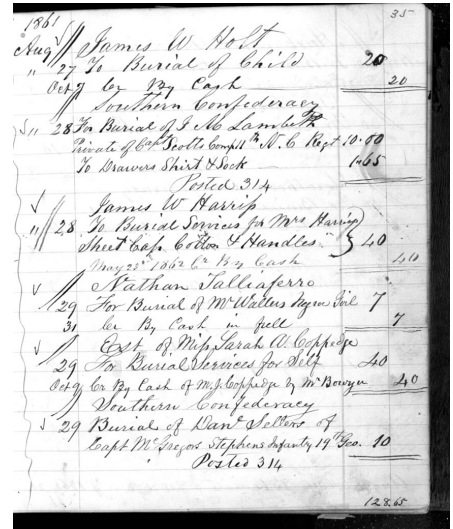 35
1861
Aug James W Holt
" 27 To Burial of Child 20
Oct 9 Cr By Cash 20
Southern Confederacy
" 28 For Burial of J M Lambeth
Private of Capt Scotts Comp 11th N. C Regt 10.00
To Drawers Shirt & Sock 1.65
Posted 314
James W Harris
" 28 To Burial Services for Mrs Harris
Sheet Cap Cotton & Handles 40
May 23d 1862 Cr By Cash 40
Nathan Talliaferro
29 For Burial of Mr Walters Negro Girl 7
31 Cr By Cash in full 7
Est of Miss Sarah W. Coppedge
29 For Burial Services for Self 40
Oct 9 Cr By Cash of M. J. Coppedge by Mr Bowyer 40
Southern Confederacy
29 Burial of Danl Sellers of
Capt McGregors Stephens Infantry 19th Geo. 10
Posted 314
128.65